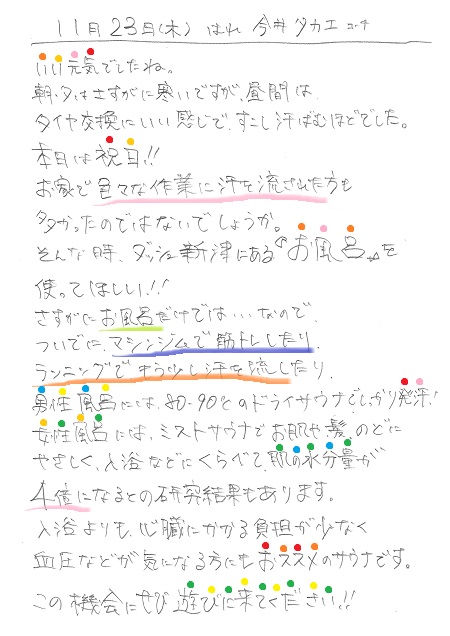 11月23日(木) はれ 今井タカエコーチ
いい元気でしたね。
朝・夕はさすがに寒いですが、昼間は、
タイヤ交換にいい感じで、すこし汗ばむほどでした。
本日は祝日!!
お家で色々な作業に汗を流された方も
多かったのではないでしょうか。
そんな時、ダッシュ新津にある『お風呂』を
使ってほしい!!
さすがにお風呂だけでは…なので、
ついでに、マシンジムで筋トレしたり、
ランニングでもう少し汗を流したり、
男性風呂には、80-90℃のドライサウナでしっかり発汗!
女性風呂には、ミストサウナでお肌や髪、のどに
やさしく、入浴などにくらべて、肌の水分量が
4倍になるとの研究結果もあります。
入浴よりも、心臓にかかる負担が少なく
血圧などが気になる方にもおススメのサウナです。
この機会にぜひ遊びに来てください!!